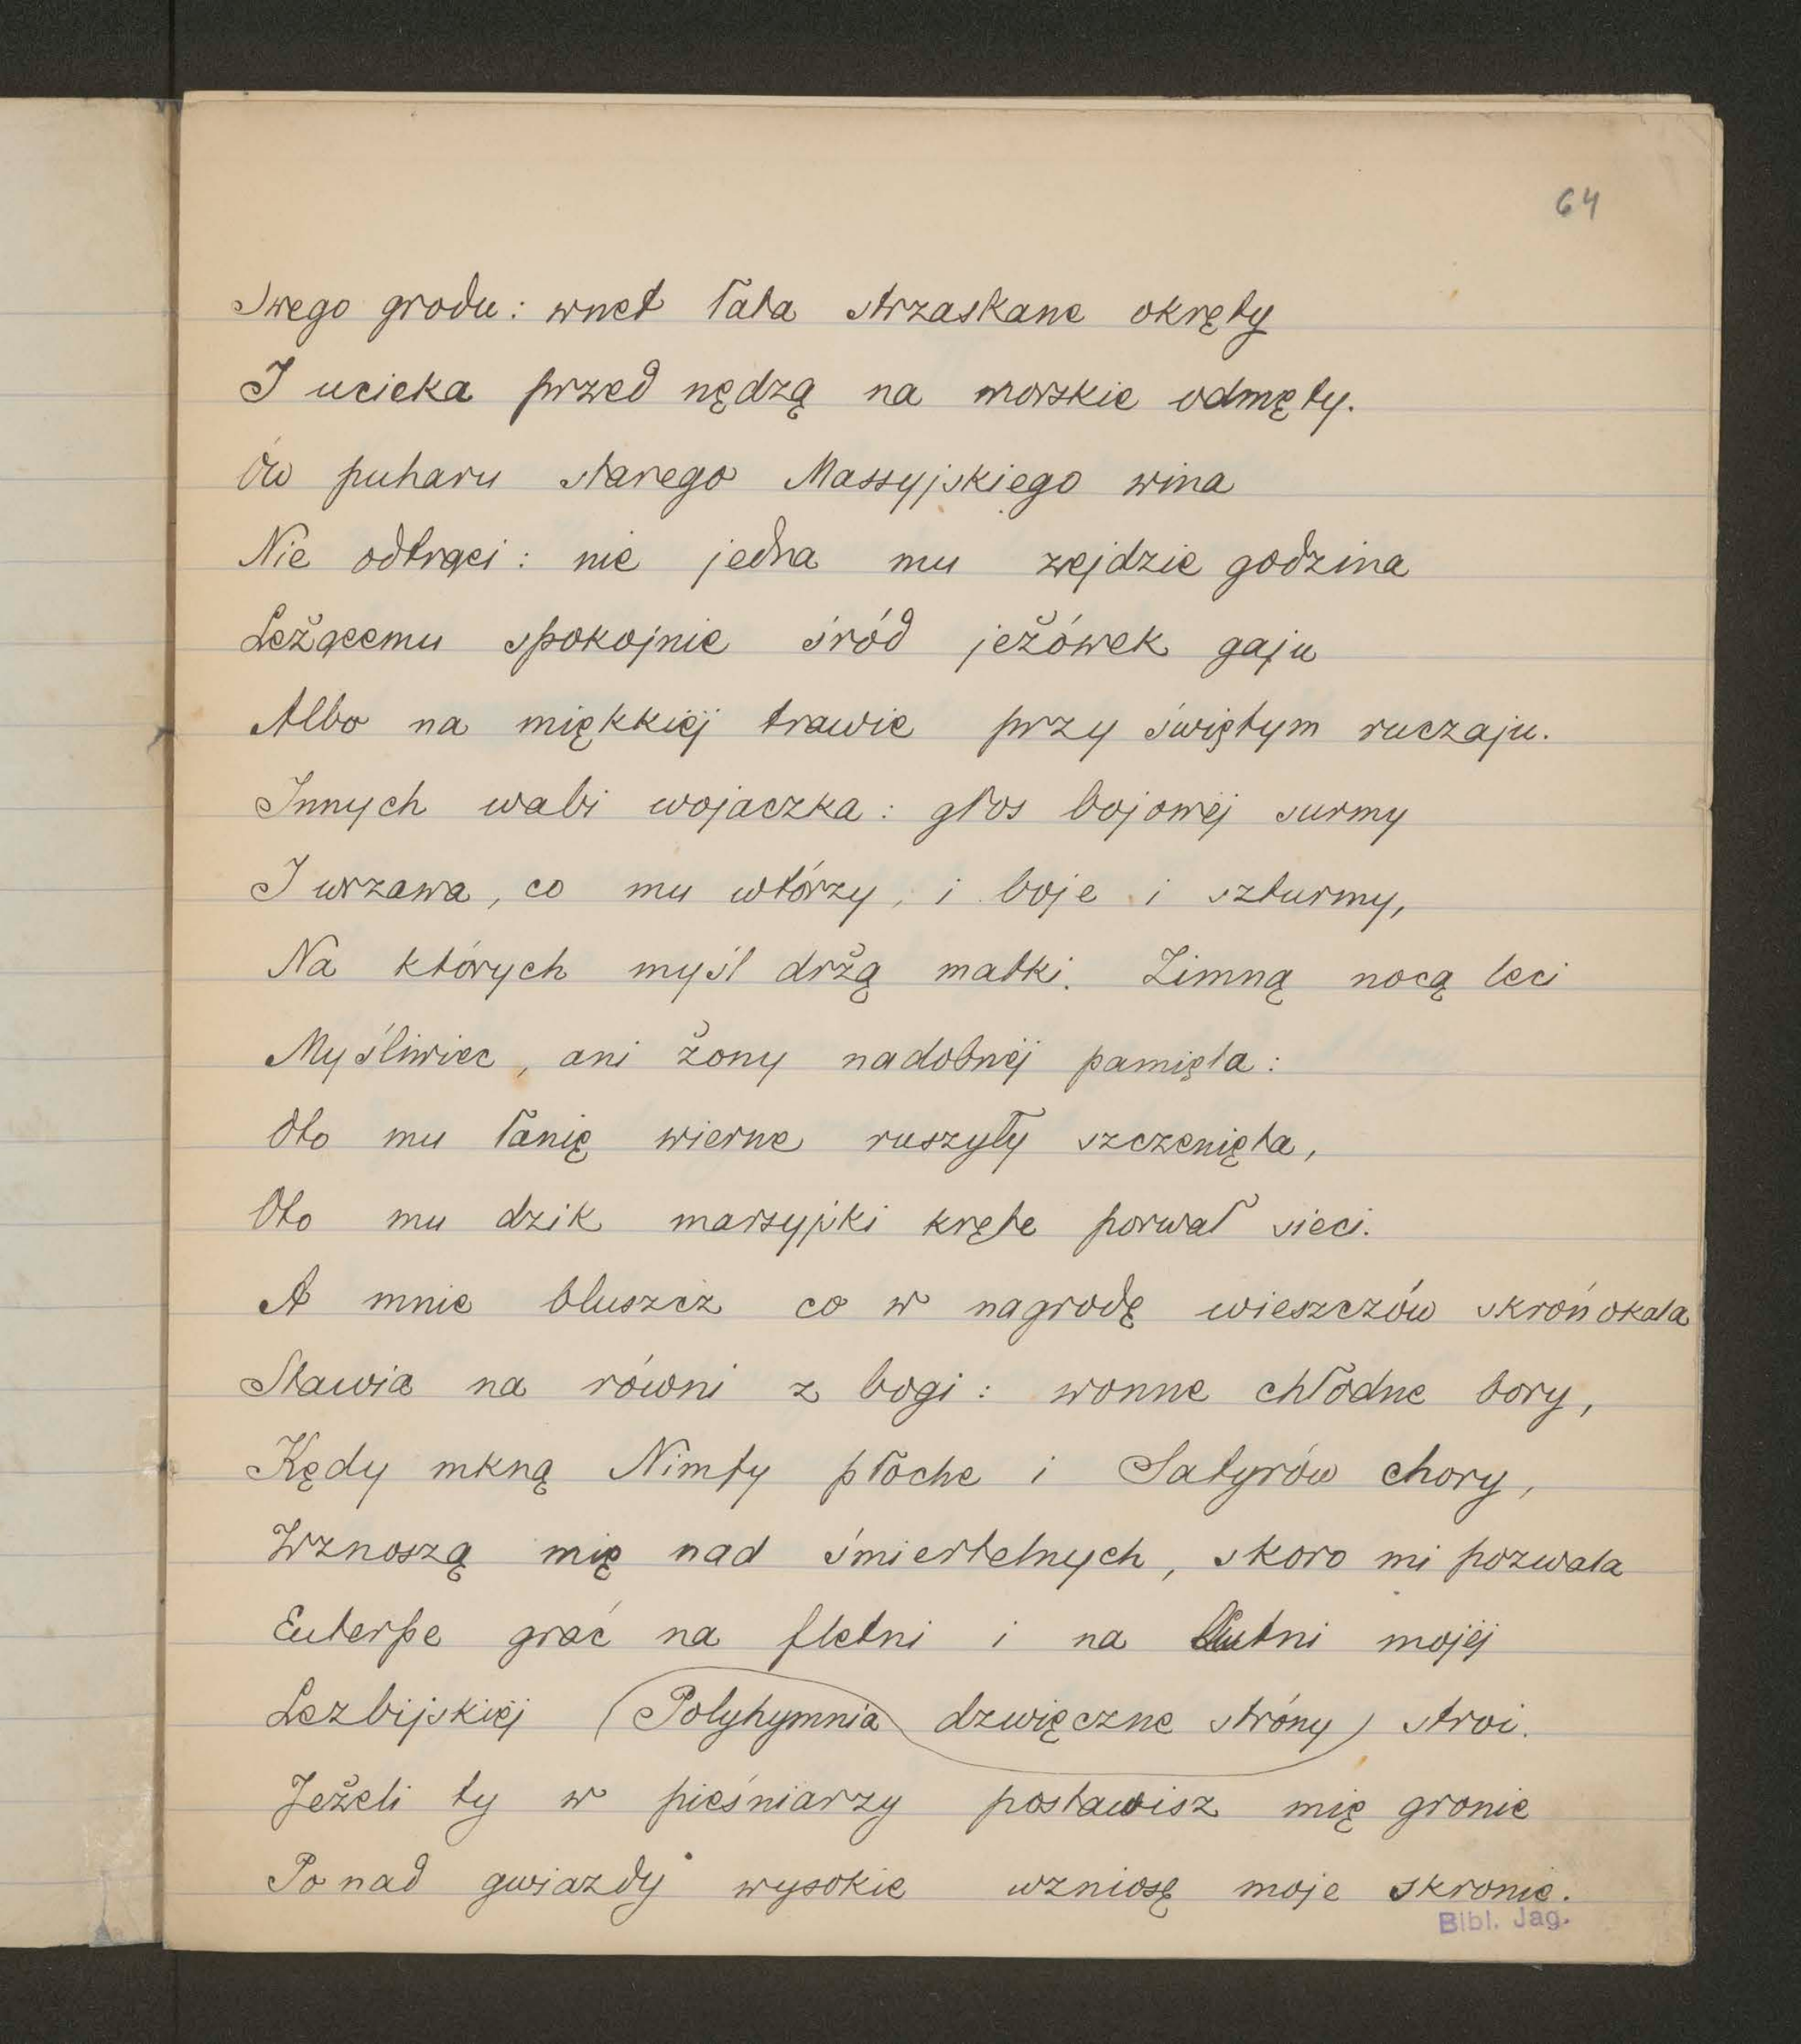 64
Swego grodu: wnet łata strzaskane okręty
I ucieka przed nędzą na morskie odmęty.
Ów puharu starego Massyjskiego wina
Nie odtrąci: nie jedna mu zejdzie godzina
Leżącemu spokojnie śród jeżówek gaju
Albo na miękkiéj trawie przy świętym ruczaju.
Innych wabi wojaczka: głos bojowéj surmy
I wrzawa, co mu wtórzy, i boje i szturmy,
Na których myśl drżą matki. Zimną nocą leci
Myśliwiec, ani żony nadobnéj pamięta:
Oto mu łanię wierne ruszyły szczenięta,
Oto mu dzik marsyjski kręte porwał sieci.
A mnie bluszcz co w nagrodę wieszczów skroń okala
Stawia na równi z bogi: wonne chłodne bory,
Kędy mkną Nimfy płoche i Satyrów chory,
Wznoszą mię nad śmiertelnych, skoro mi pozwala
Euterpe grać na fletni i na lutni mojéj
Lezbijskiéj (Polyhymnia dzwięczne stróny) stroi.
Jeżeli ty w pieśniarzy postawisz mię gronie
Ponad gwiazdy wysokie wzniosę moje skronie.
Bibl. Jag.